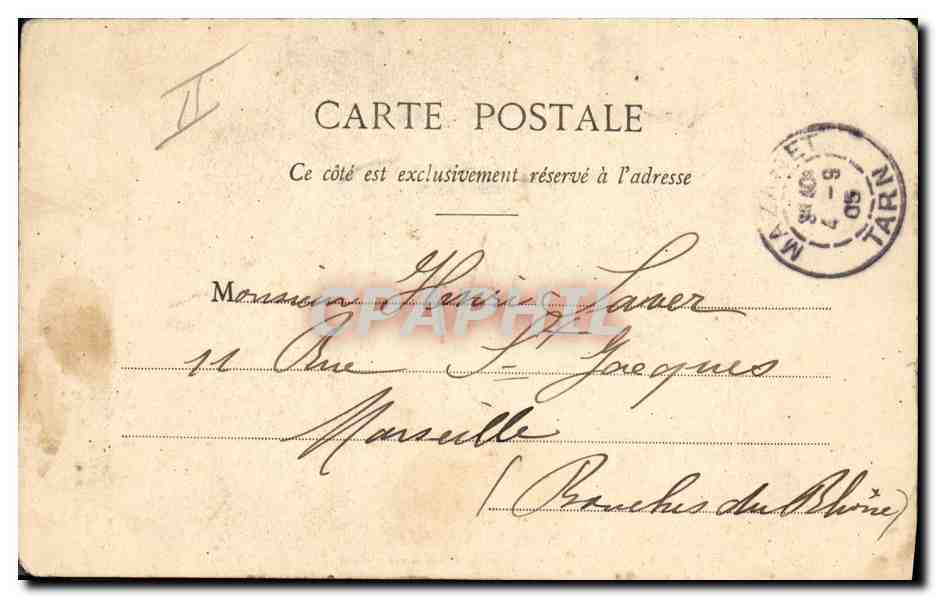 II
CARTE POSTALE
Ce côté est exclusivement réservé à l'adresse
MAZAMET
4 - 9
05
TARN
Monsieur Henri Laver
11 Rue St Jacques
Marseille
(Bouches du Rhône)
CPAPHIL